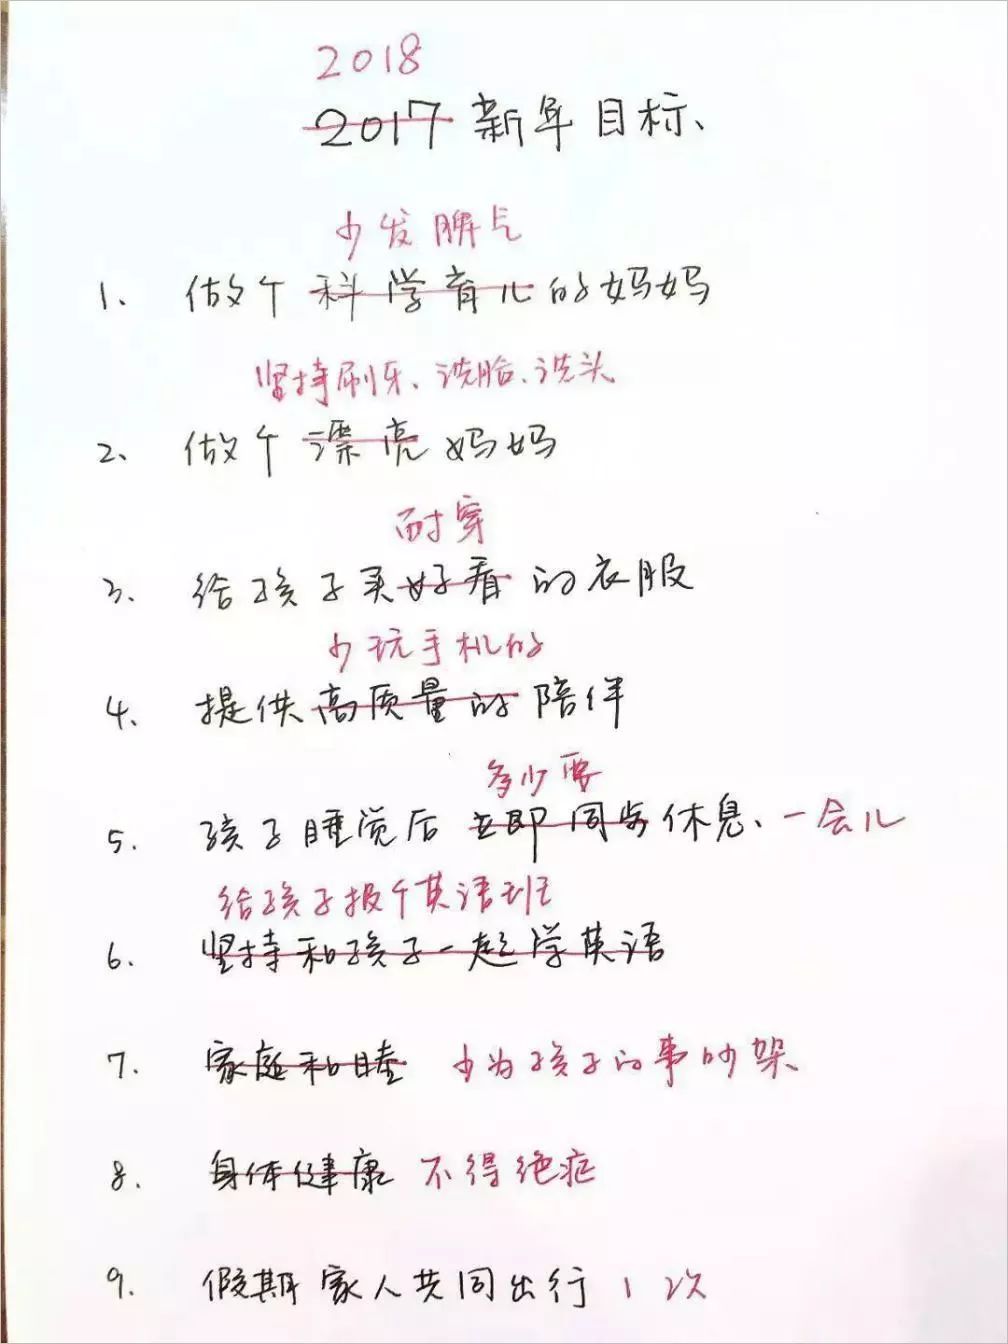 2018
2017新年目标、
少发脾气
1、做个科学育儿的妈妈
坚持刷牙、洗脸、洗头
2、做个漂亮妈妈
耐穿
3、给孩子买好看的衣服
少玩手机的
4、提供高质量的陪伴
多少要
5、孩子睡觉后立即同步休息、一会儿
给孩子报个英语班
6、坚持和孩子一起学英语
7、家庭和睦 少为孩子的事吵架
8、身体健康 不得绝症
9、假期家人共同出行1次